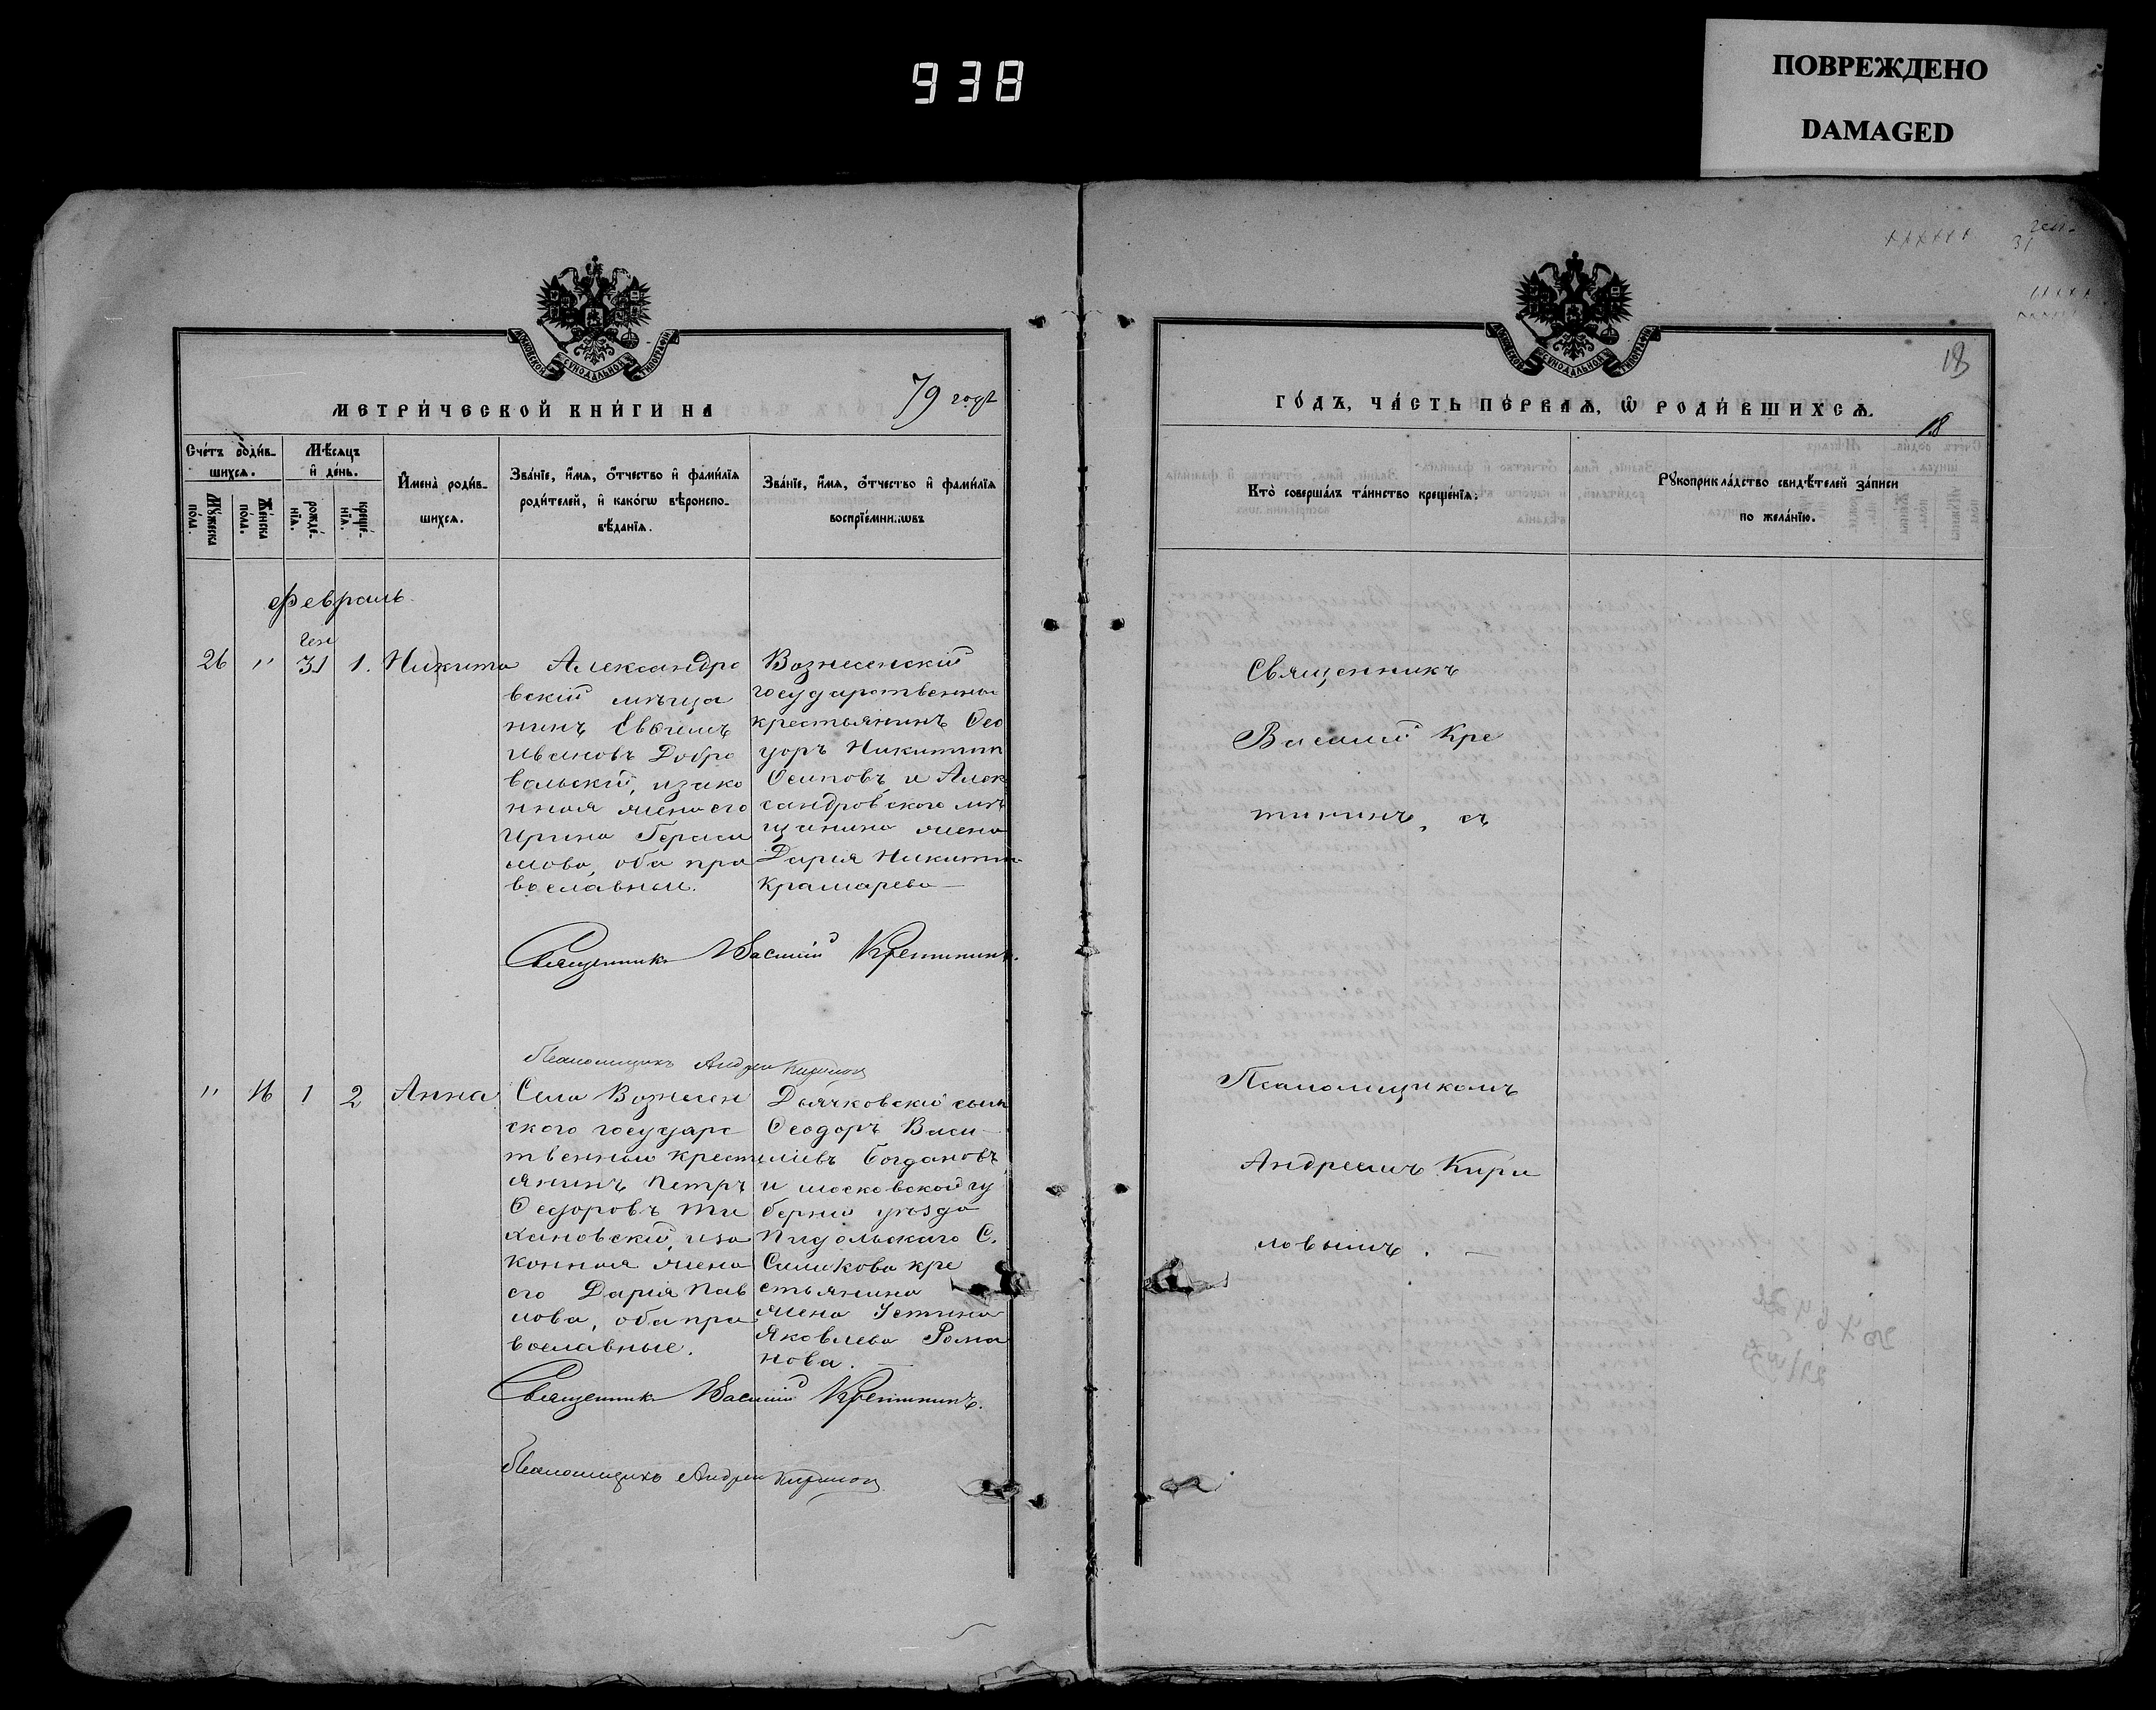 938
ПОВРЕЖДЕНО
DAMAGED
МОСКОВСКОЙ СѴНОДАЛЬНОЙ ТИПОГРАФІИ
МЕТРИ́ЧЕСКОЙ КНИ́ГИ НА 79 годъ
Сче́тъ роди́в-
шихсѧ.
Мꙋ́жеска по́ла.
Же́нска по́ла.
Мѣ́сѧцъ
и҆ де́нь.
рожде́-
нїѧ.
креще́-
нїѧ.
И҆мена̀ роди́в-
шихсѧ.
Зва́нїе, и҆́мѧ, ѻ҆́тчество и҆ фами́лїѧ
роди́телей, и҆ како́гѡ вѣроиспо-
вѣ́данїѧ.
Зва́нїе, и҆́мѧ, ѻ҆́тчество и҆ фами́лїѧ
воспрїе́мникѡвъ
февраль
Ген
26 " 31 1. Никита
Александро
вскій мѣща
нинъ Евѳимъ
Ивановъ Добро
вольскій, изако
нная жена его
Ирина Гераси
мова, оба пра
вославныи.
Вознесенскій
государственный
крестьянинъ Ѳео
доръ Никитинъ
Осиповъ и Алек
сандровского мѣ
щанина жена
Дарія Никитина
Крамарева —
Священникъ Василій Кретининъ.
Псаломщикъ Андрей Кириловъ
" 16 1 2 Анна
Села Вознесен
ского государс
твенный крест
янинъ Петръ
Ѳеодоровъ Ти
хановскій, иза
конная жена
его Дарія Пав
лова, оба пра
вославные.
Дьячковскій сынъ
Ѳеодоръ Васи
лиевъ Богдановъ
и московской гу
берніи уѣзда
Подольскаго С.
кре
стьянина
жена Устина
Яковлева Рома
нова. —
Священникъ Василій Кретининъ.
Псаломщикъ Андрей Кириловъ
МОСКОВСКОЙ СѴНОДАЛЬНОЙ ТИПОГРАФІИ
ген-
31
18
ГО́ДЪ, ЧА́СТЬ ПЕ́РВАѦ, Ѡ҆ РОДИ́ВШИХСѦ.
18
Кто̀ соверша́лъ та́инство креще́нїѧ:
Рꙋкоприкла́дство свидѣ́телей за́писи
по жела́нїю.
Священникъ
Василій Кре
тининъ, съ
Псаломщикомъ
Андреемъ Кири
ловымъ. —